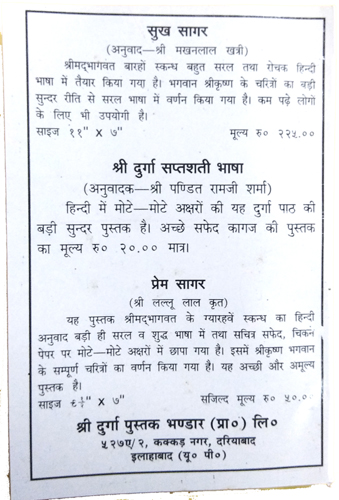 सुख सागर
(अनुवाद—श्री मखनलाल खत्री)
श्रीमद्भागवत बारहो स्कन्ध बहुत सरल तथा रोचक हिन्दी
भाषा में तैयार किया गया है। भगवान श्रीकृष्ण के चरित्रों का बड़ी
सुन्दर रीति से सरल भाषा में वर्णन किया गया है। कम पढ़े लोगों
के लिए भी उपयोगी है।
साइज ११" X ७" मूल्य रु० २२५.००
श्री दुर्गा सप्तशती भाषा
(अनुवादक—श्री पण्डित रामजी शर्मा)
हिन्दी में मोटे—मोटे अक्षरों की यह दुर्गा पाठ की
बड़ी सुन्दर पुस्तक है। अच्छे सफेद कागज की पुस्तक
का मूल्य रु० २०.०० मात्र।
प्रेम सागर
(श्री लल्लू लाल कृत)
यह पुस्तक श्रीमद्भागवत के ग्यारहवें स्कन्ध का हिन्दी
अनुवाद बड़ी ही सरल व शुद्ध भाषा में तथा सचित्र सफेद, चिकने
पेपर पर मोटे—मोटे अक्षरों में छापा गया है। इसमें श्रीकृष्ण भगवान
के सम्पूर्ण चरित्रों का वर्णन किया गया है। यह अच्छी और अमूल्य
पुस्तक है।
साइज ९½" X ७" सजिल्द मूल्य रु० ५०.००
श्री दुर्गा पुस्तक भण्डार (प्रा०) लि०
५२७ए/२, कक्कड़ नगर, दरियाबाद
इलाहाबाद (यू० पी०)